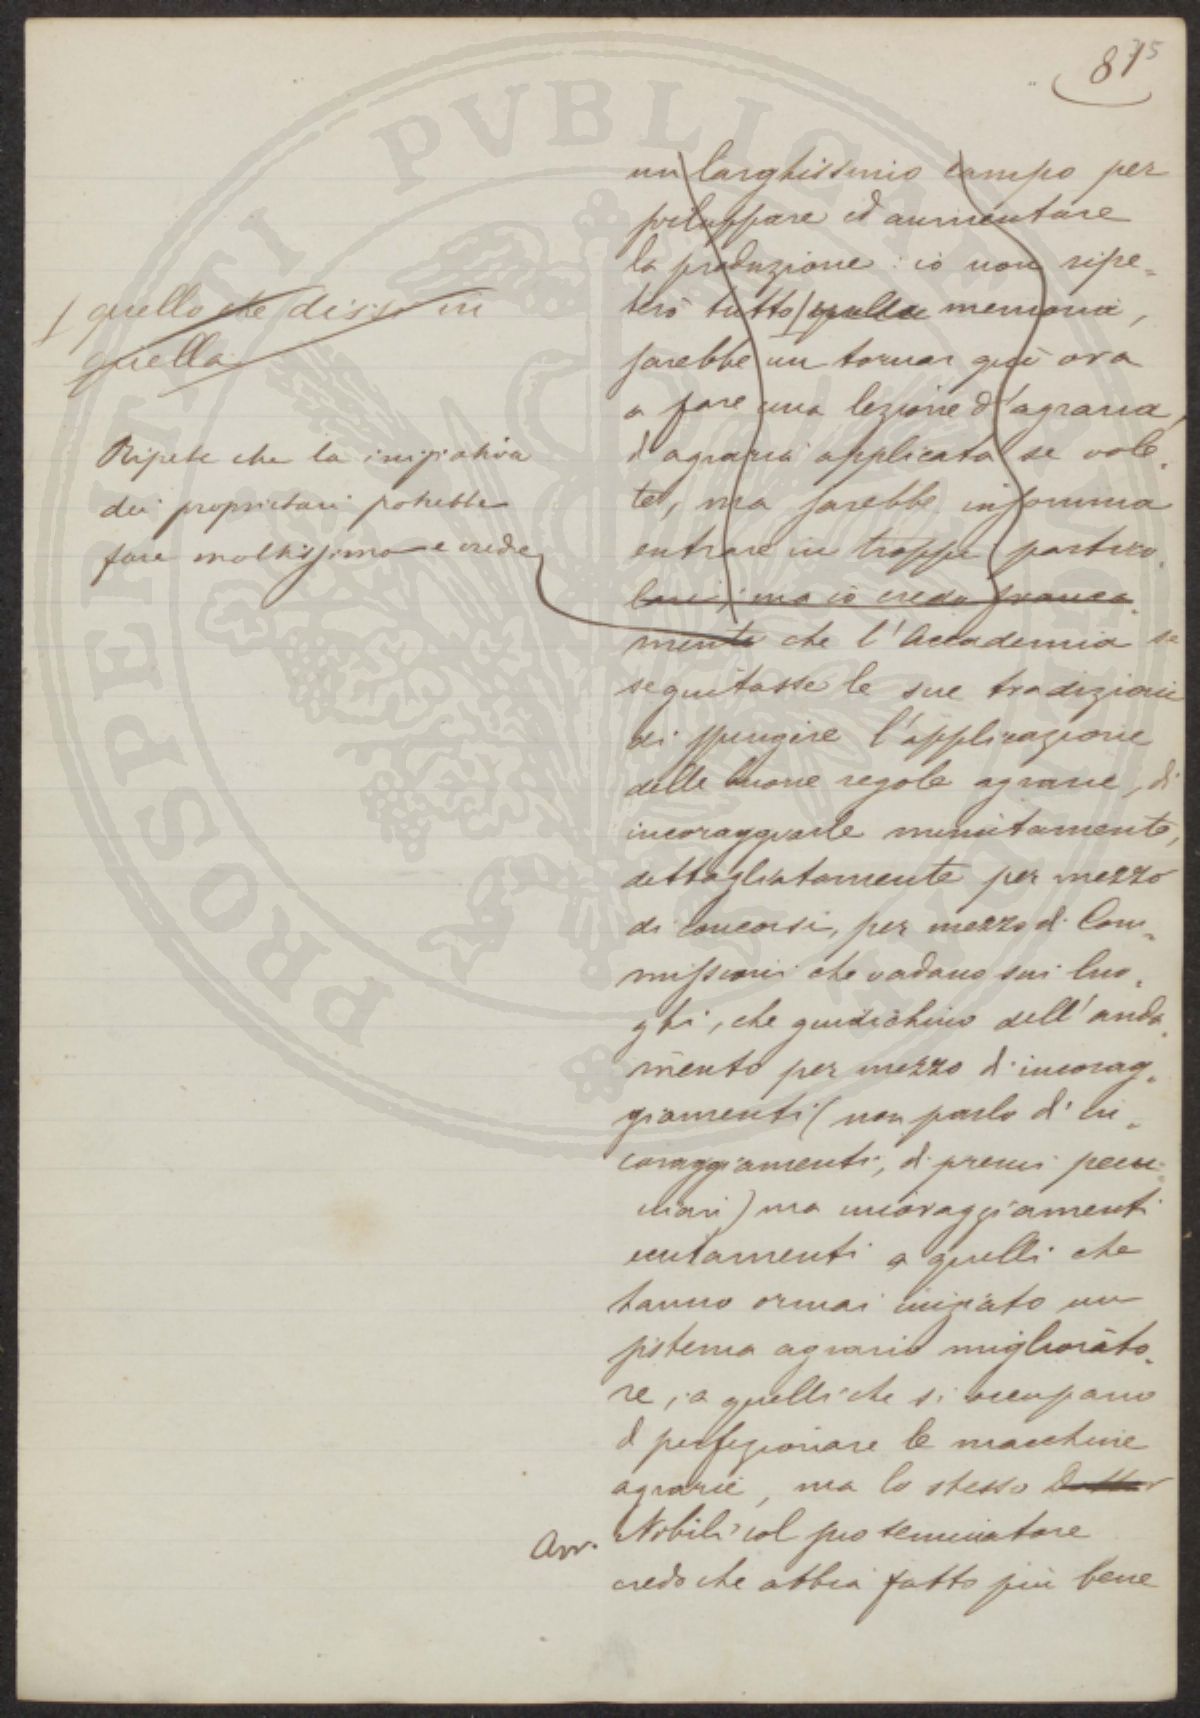 815
un larghissimo campo per
sviluppare ed aumentare
la produzione: io non ripe=
terò tutto / quella memoria,
sarebbe un tornar qui ora
a fare una lezione d'agraria,
d'agraria applicata se vole=
te, ma sarebbe insomma
entrare in troppi partico=
lari; ma io credo franca=
mente che l'Accademia se
seguitasse le sue tradizioni
di spingere l'applicazione
delle buone regole agrarie, di
incoraggiarle minutamente,
dettagliatamente per mezzo
di concorsi, per mezzo di Com=
missioni che vadano sui luo=
ghi, che giudichino dell'anda=
mento per mezzo di incorag=
giamenti (non parlo di in=
coraggiamenti, di premi pecu=
niari) ma incoraggiamenti
a quelli che
hanno ormai iniziato un
sistema agrario migliorato=
re, a quelli che si occupano
di perfezionare le macchine
agrarie, ma lo stesso Dottor
Nobili col suo seminatore
credo che abbia fatto più bene
/ quello che dissi in
quella
Ripete che la iniziativa
dei proprietari potrebbe
fare moltissimo e crede
Avv.
PROSPERITATI PVBLICAE